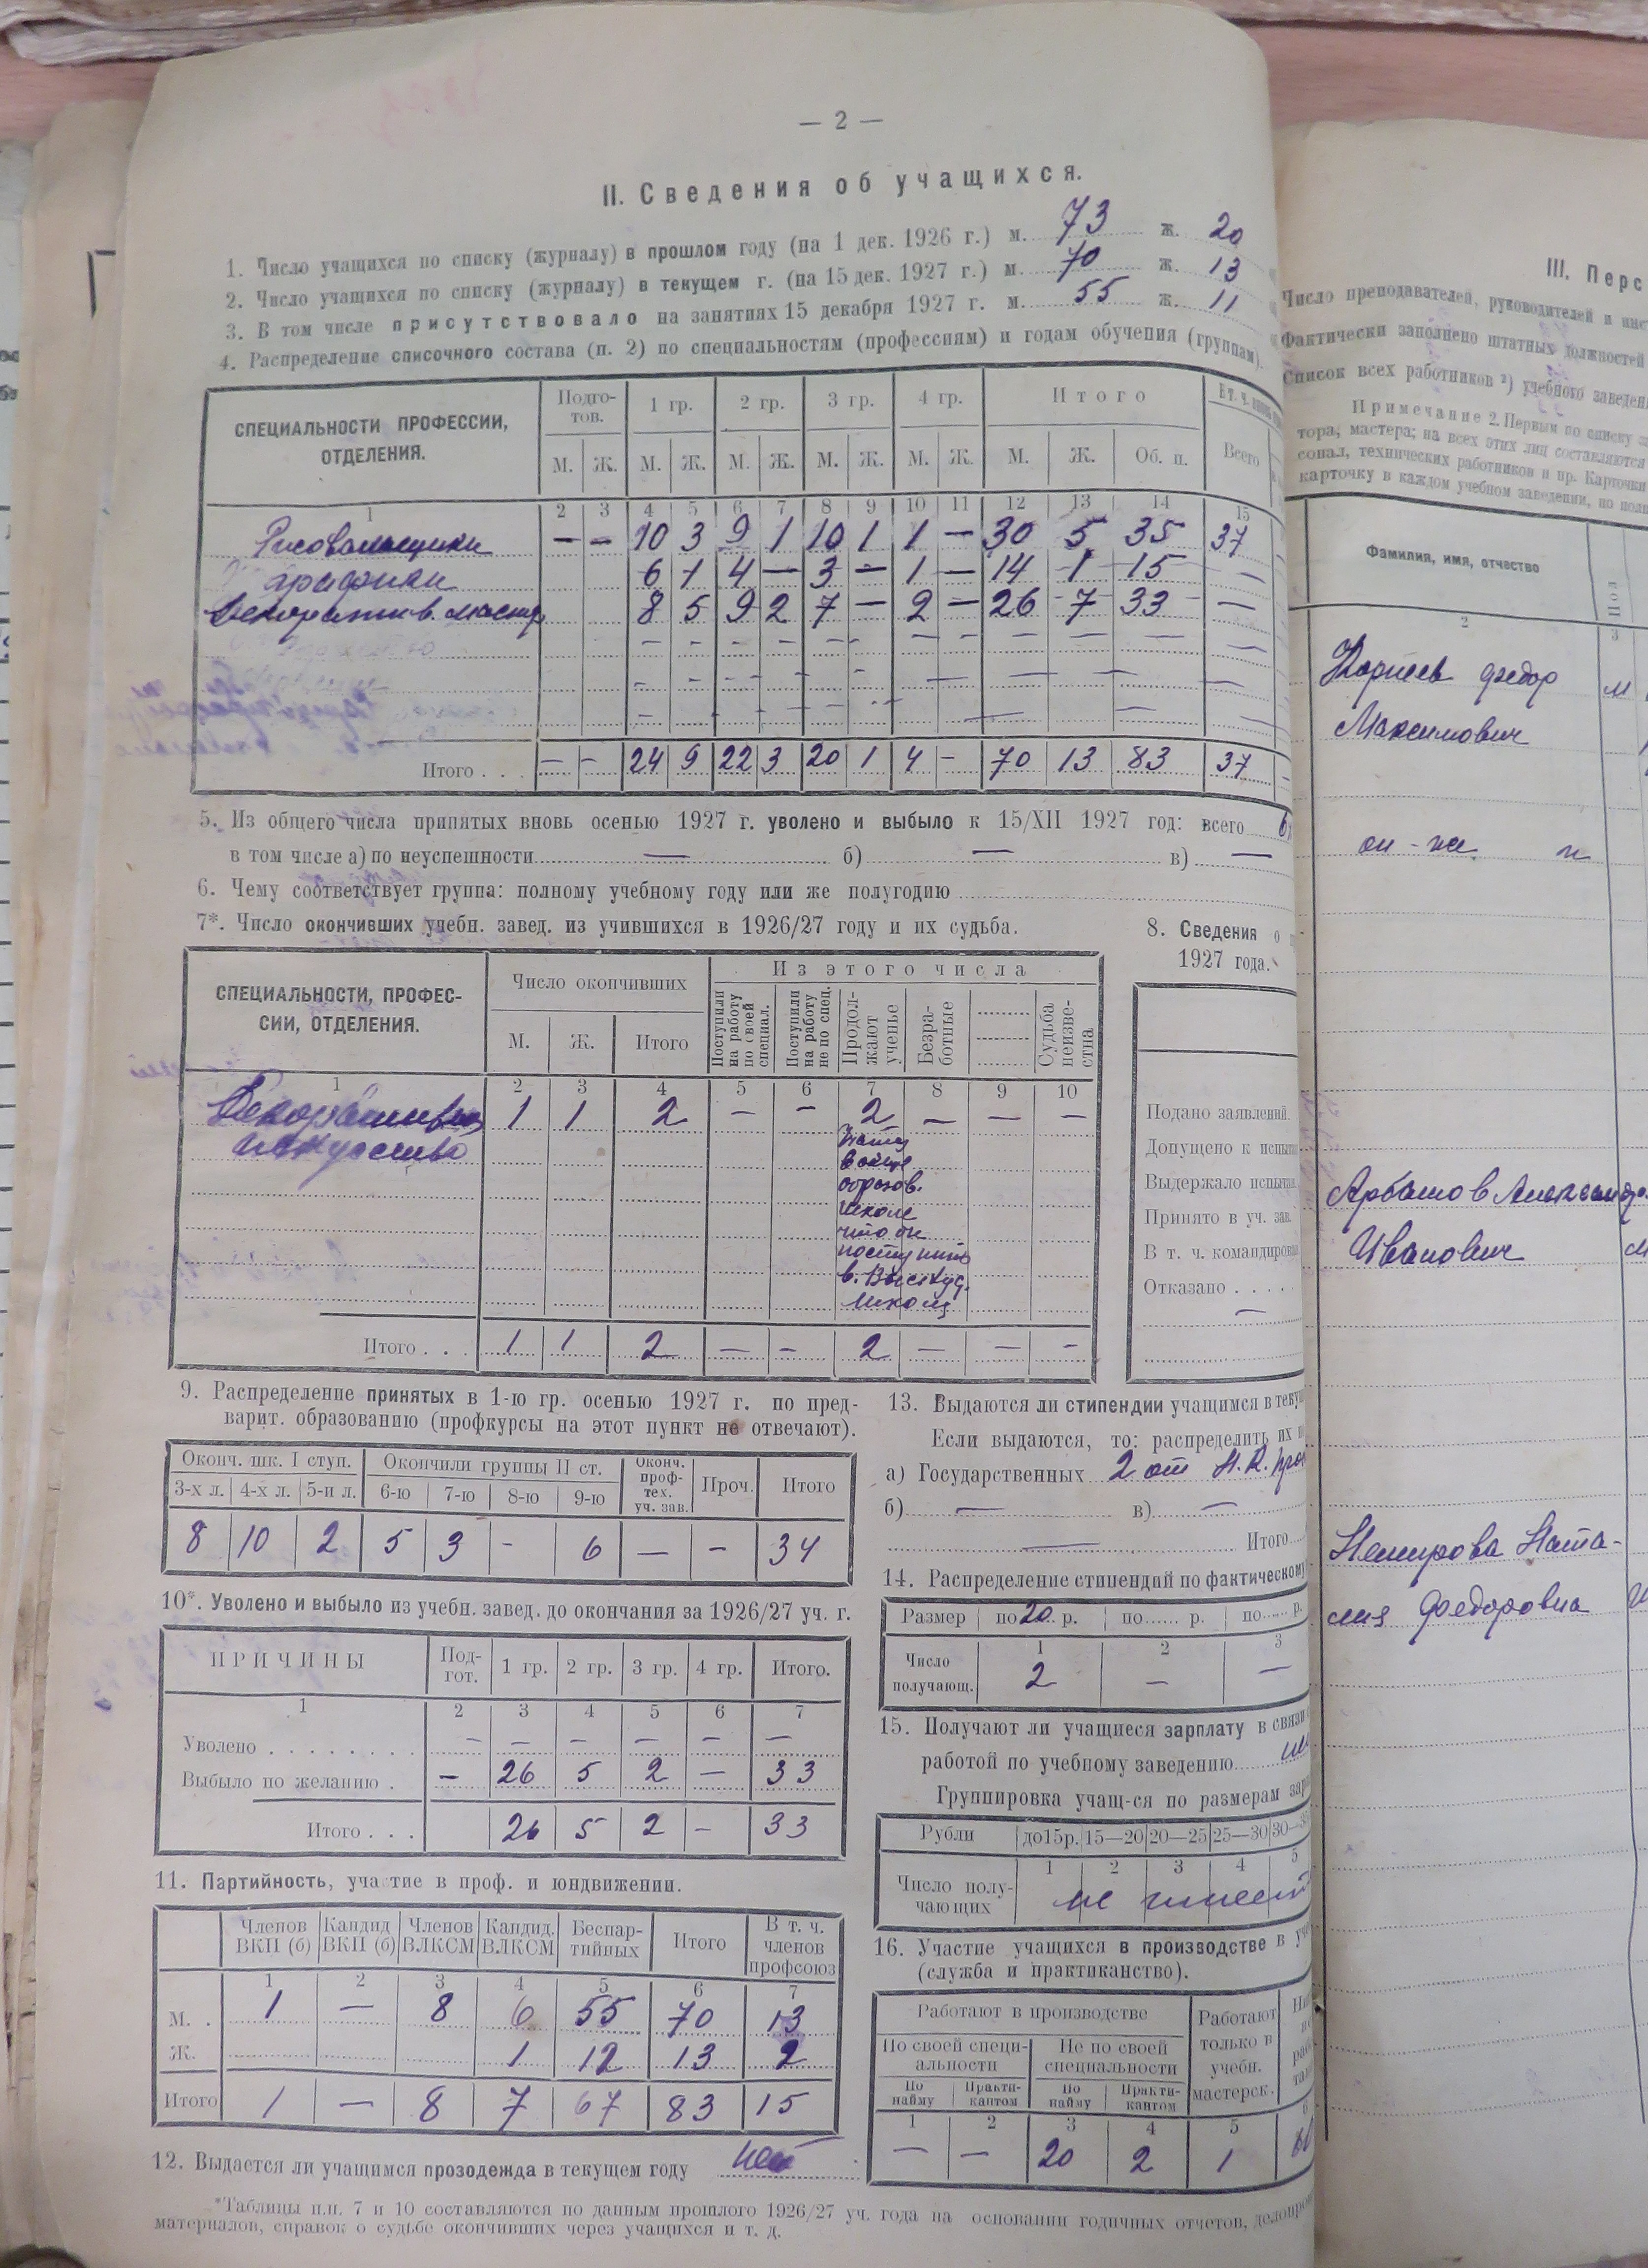 — 2 —
II. Сведения об учащихся.
1. Число учащихся по списку (журналу) в прошлом году (на 1 дек. 1926 г.) м. 73 ж. 20
2. Число учащихся по списку (журналу) в текущем г. (на 15 дек. 1927 г.) м. 70 ж. 13
3. В том числе присутствовало на занятиях 15 декабря 1927 г. м. 55 ж. 11
4. Распределение списочного состава (п. 2) по специальностям (профессиям) и годам обучения (группам).
СПЕЦИАЛЬНОСТИ ПРОФЕССИИ, ОТДЕЛЕНИЯ. Подготов. 1 гр. 2 гр. 3 гр. 4 гр. Итого В т. ч.
М. Ж. М. Ж. М. Ж. М. Ж. М. Ж. М. Ж. Об. п. Всего
1 2 3 4 5 6 7 8 9 10 11 12 13 14 15
Рисовальщики — — 10 3 9 1 10 1 1 — 30 5 35 37
графики 6 1 4 — 3 — 1 — 14 1 15 —
Декоратив. мастер. 8 5 9 2 7 — 2 — 26 7 33 —
Итого . . . — — 24 9 22 3 20 1 4 - 70 13 83 37
5. Из общего числа принятых вновь осенью 1927 г. уволено и выбыло к 15/XII 1927 год: всего
в том числе а) по неуспешности — б) — в) —
6. Чему соответствует группа: полному учебному году или же полугодию
7*. Число окончивших учебн. завед. из учившихся в 1926/27 году и их судьба.
СПЕЦИАЛЬНОСТИ, ПРОФЕССИИ, ОТДЕЛЕНИЯ. Число окончивших Из этого числа
М. Ж. Итого Поступили на работу по своей специал. Поступили на работу не по спец. Продолжают ученье Безработные Судьба неизвестна
1 2 3 4 5 6 7 8 9 10
Декоративное 1 1 2 — — 2 — — —
искусство
образов.
школе
поступить
школы
Итого . . . 1 1 2 — — 2 — — -
8. Сведения о
1927 года.
Подано заявлений.
Допущено к испыт
Выдержало испыта
Принято в уч. зав.
В т. ч. командирован
Отказано . . . . .
—
9. Распределение принятых в 1-ю гр. осенью 1927 г. по пред-
варит. образованию (профкурсы на этот пункт не отвечают).
Оконч. шк. I ступ. Окончили группы II ст. Оконч. проф-тех. уч. зав. Проч. Итого
3-х л. 4-х л. 5-и л. 6-ю 7-ю 8-ю 9-ю
8 10 2 5 3 - 6 — - 34
10*. Уволено и выбыло из учебн. завед. до окончания за 1926/27 уч. г.
ПРИЧИНЫ Под-гот. 1 гр. 2 гр. 3 гр. 4 гр. Итого.
1 2 3 4 5 6 7
Уволено . . . . . . . . — — — — — —
Выбыло по желанию . — 26 5 2 — 33
Итого . . . 26 5 2 — 33
11. Партийность, участие в проф. и юндвижении.
Членов ВКП (б) Кандид ВКП (б) Членов ВЛКСМ Кандид. ВЛКСМ Беспар-тийных Итого В т. ч. членов профсоюз
1 2 3 4 5 6 7
М. . 1 — 8 6 55 70 13
Ж. 1 12 13 2
Итого 1 — 8 7 67 83 15
12. Выдается ли учащимся прозодежда в текущем году нет
13. Выдаются ли стипендии учащимся в теку
Если выдаются, то: распределить их п
а) Государственных 2 от Н.К.
б) — в) —
— Итого
14. Распределение стипендий по фактическому
Размер по 20 р. по...... р. по...... р.
1 2 3
Число получающ. 2 — —
15. Получают ли учащиеся зарплату в связи
работой по учебному заведению
Группировка учащ-ся по размерам зар
Рубли до 15 р. 15—20 20—25 25—30 30—
1 2 3 4 5
Число полу-чающих не имеет
16. Участие учащихся в производстве в уч
(служба и практиканство).
Работают в производстве Работают только в учебн. мастерск.
По своей специ-альности Не по своей специальности
По найму Практи-кантом По найму Практи-кантом
1 2 3 4 5 6
— — 20 2 1 60
*Таблицы п.п. 7 и 10 составляются по данным прошлого 1926/27 уч. года на основании годичных отчетов, делопро
материалов, справок о судьбе окончивших через учащихся и т. д.
III. Перс
Число преподавателей, руководителей и инст
Фактически заполнено штатных должностей
Список всех работников ²) учебного заведен
Примечание 2. Первым по списку за
тора, мастера; на всех этих лиц составляются
сонал, технических работников и пр. Карточки
карточку в каждом учебном заведении, но полн
Фамилия, имя, отчество Пол
2 3
Корнеев Федор м
Максимович
он-же
Арбатов Александр
Иванович м
Немирова Ната-
лия Федоровна